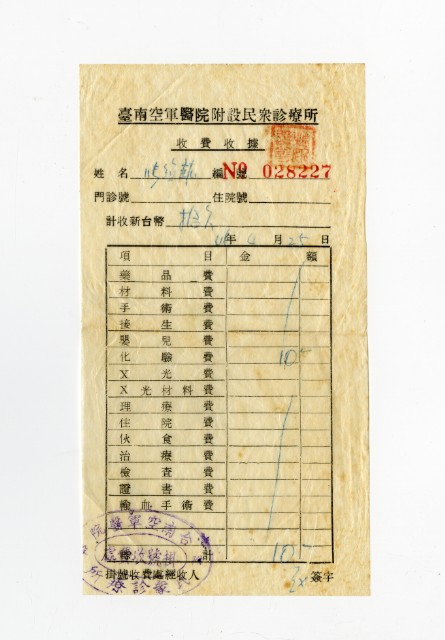 臺南空軍醫院附設民眾診療所
收費收據
姓名 編號 № 028227
門診號 住院號
計收新台幣
年 4 月 25 日
項目 金額
藥品費
材料費
手術費
接生費
嬰兒費
化驗費
X光費
X光材料費
理療費
住院費
伙食費
治療費
檢查費
證書費
輸血手術費
計
掛號收費處經收人 簽字